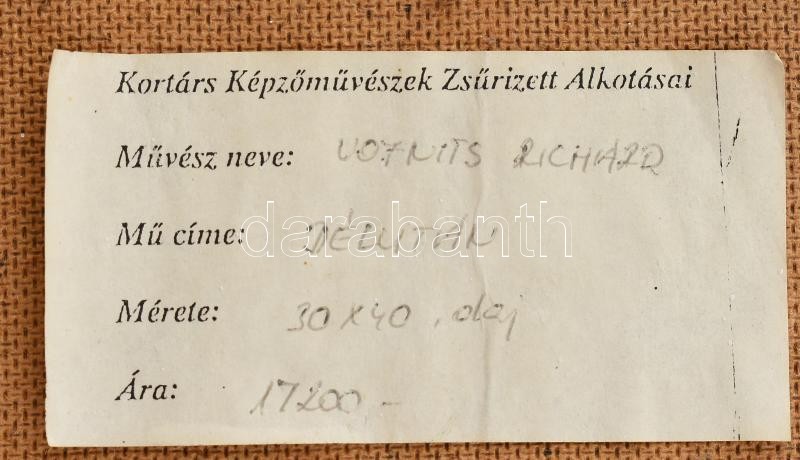 Kortárs Képzőművészek Zsűrizett Alkotásai
Művész neve: VOJNITS RICHARD
Mű címe: DÉLUTÁN
darabanth
Mérete: 30 x 40, olaj
Ára: 17200 -